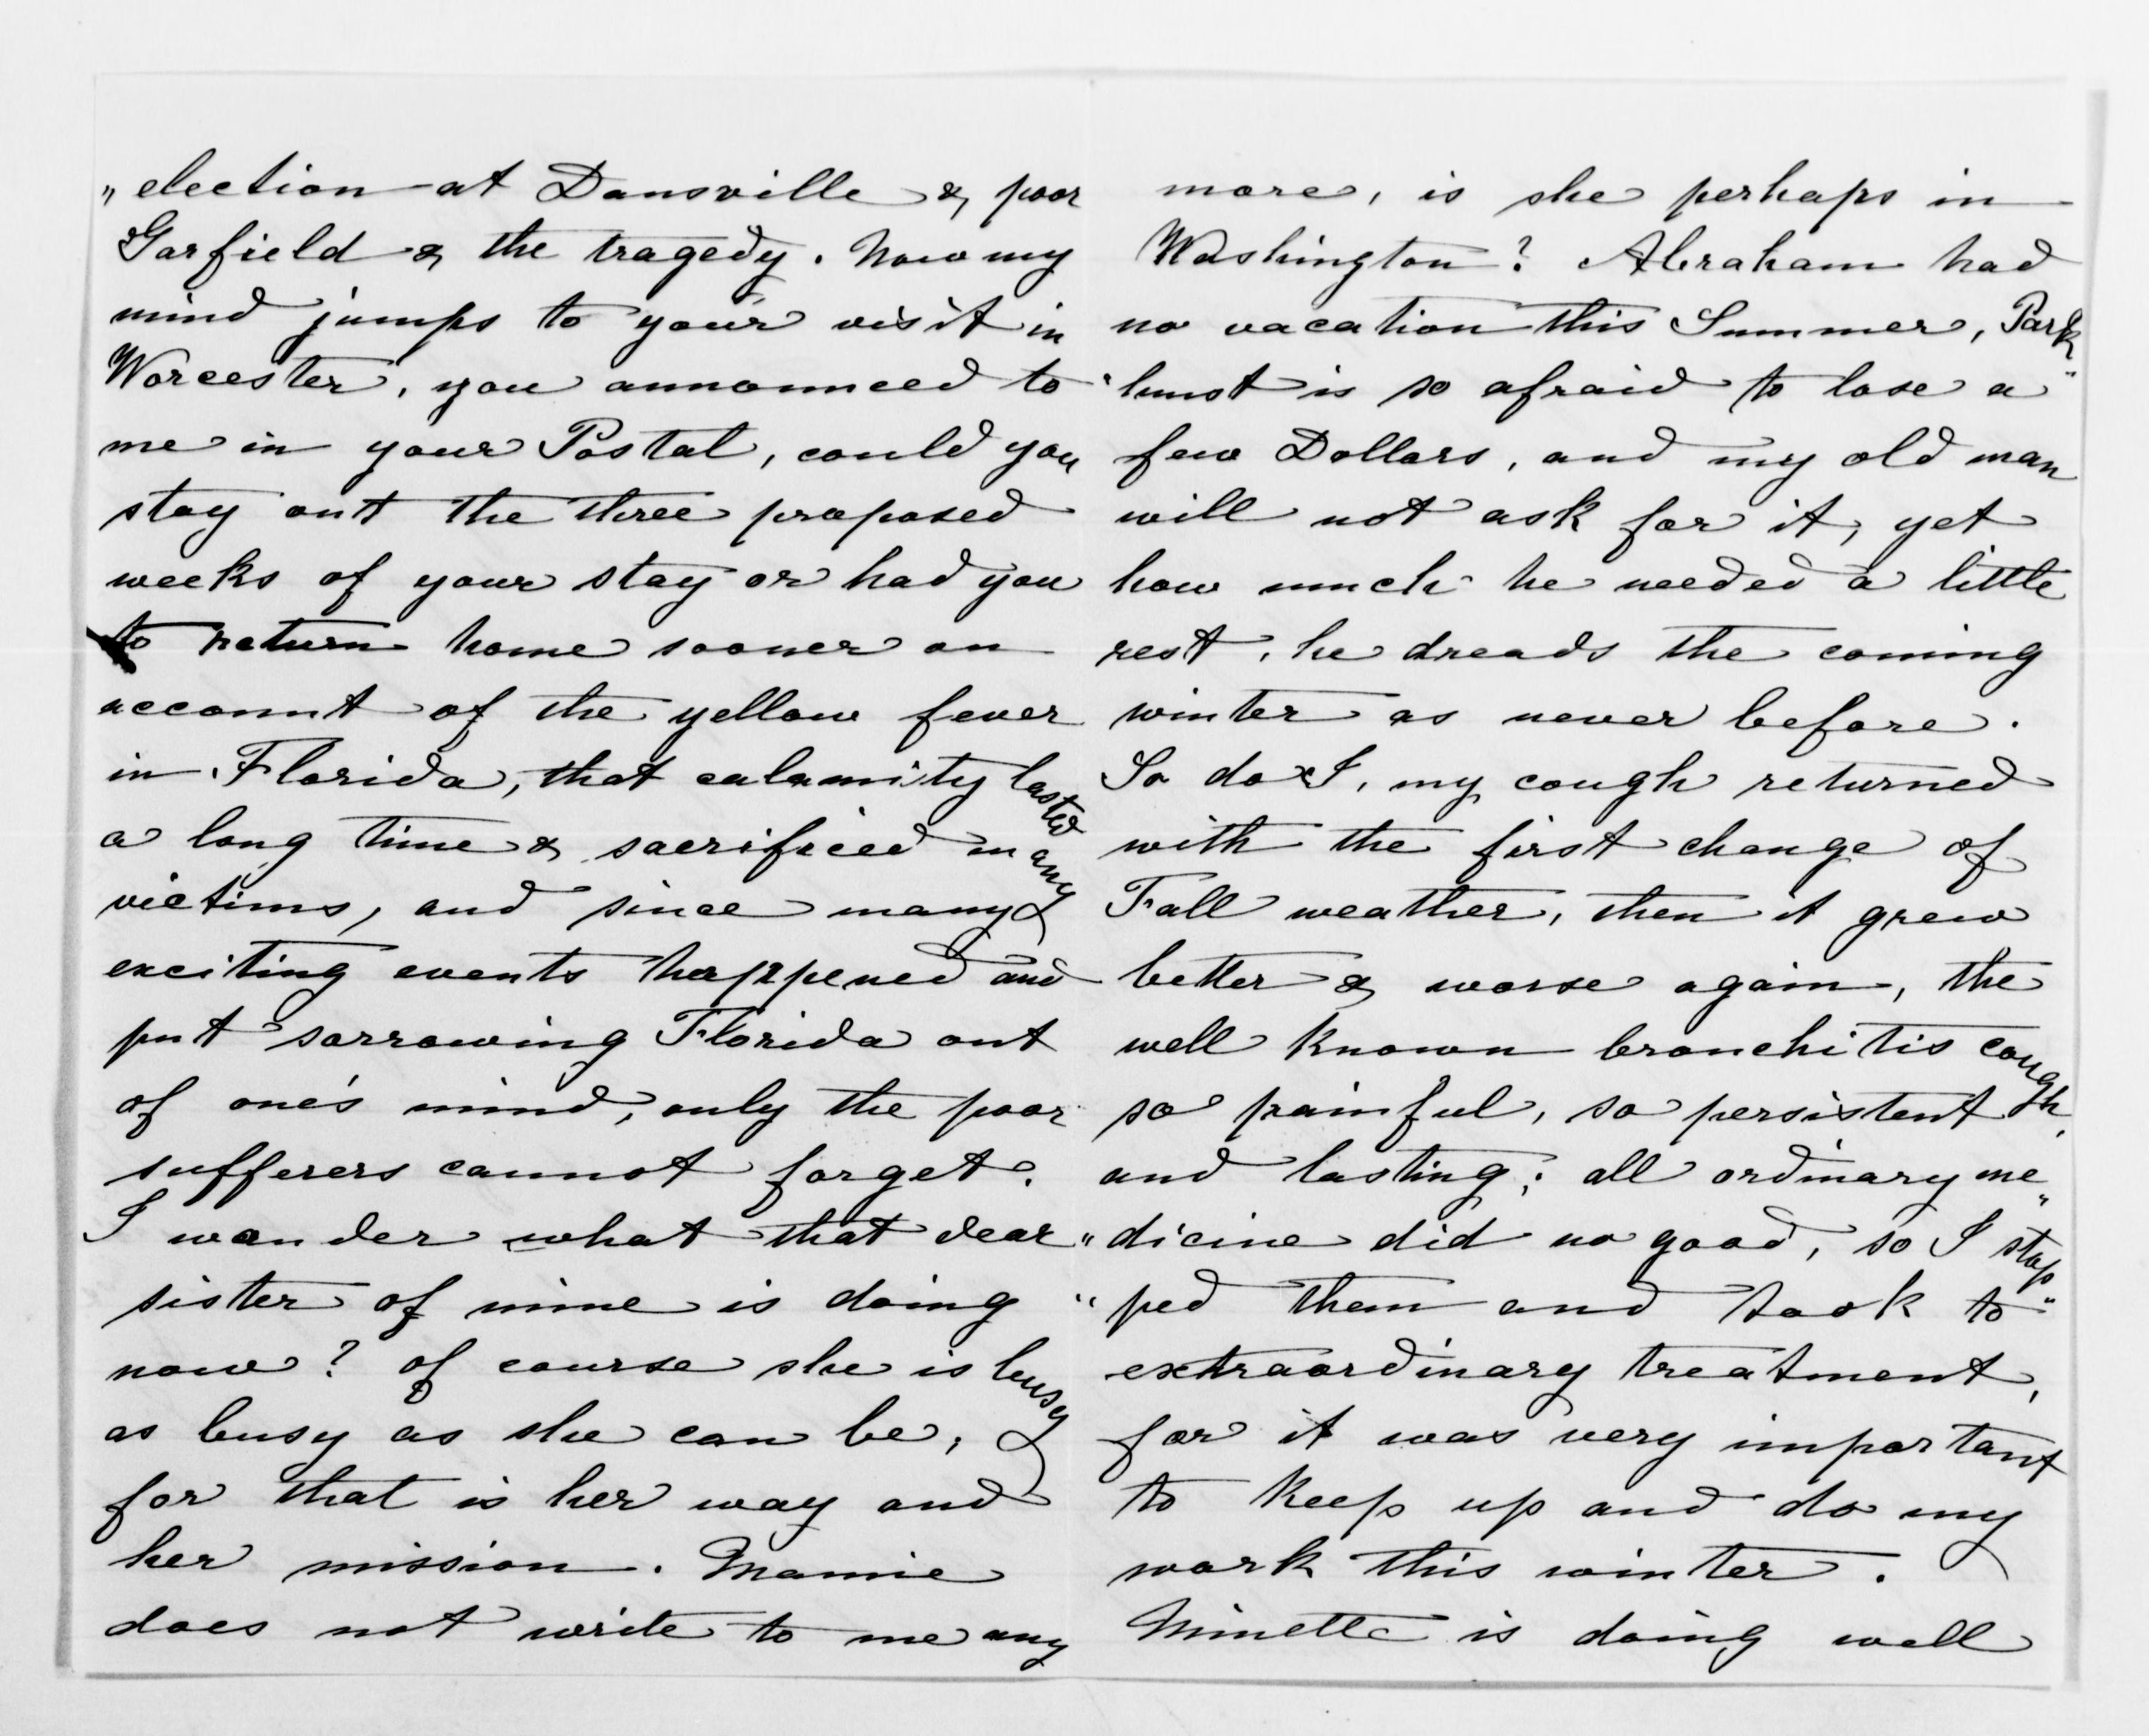 „election at Dansville & poor
Garfield & the tragedy. Now my
mind jumps to your visit in
Worcester, you announced to
me in your Postal, could you
stay out the three proposed
weeks of your stay or had you
to return home sooner on
account of the yellow fever
in Florida, that calamity lasted
a long time & sacrificed many
victims, and since many
exciting events happened and
put sorrowing Florida out
of one's mind, only the poor
sufferers cannot forget.
I wonder what that dear
sister of mine is doing
now? of course she is busy
as busy as she can be,
for that is her way and
her mission. Mamie
does not write to me any
more, is she perhaps in
Washington? Abraham had
no vacation this Summer, Park„
"hurst is so afraid to lose a
few Dollars, and my old man
will not ask for it, yet
how much he needed a little
rest, he dreads the coming
winter as never before.
So do I, my cough returned
with the first change of
Fall weather, then it grew
better & worse again, the
well known bronchitis cough,
so painful, so persistent
and lasting; all ordinary me„
"dicine did no good, so I stop„
"ped them and took to
extraordinary treatment,
for it was very important
to keep up and do my
work this winter.
Minette is doing well